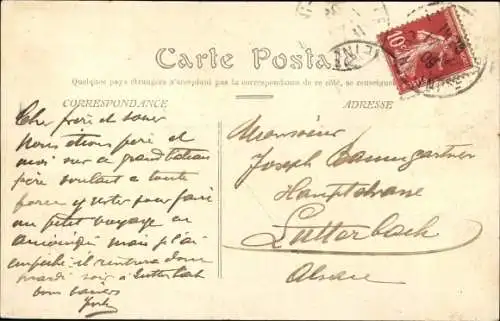 Carte Postale
Quelques pays étrangers n'acceptant pas la correspondance de ce côté, se renseigner
CORRESPONDANCE
ADRESSE
10c
Cher frère et soeur
Nous étions père et
moi sur
père voulait a toute
force y rester pour faire
un petit voyage en
mais j'ai
empêché il rentrera donc
mardi soir à Lutterbach
bons baisers
Monsieur
Joseph Baumgartner
Hauptstrasse
Lutterbach
Alsace